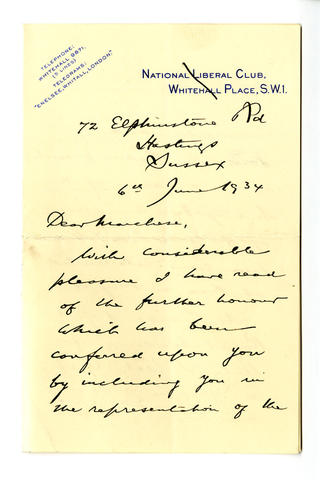 TELEPHONE:
WHITEHALL 9871.
(9 LINES)
TELEGRAMS:
"ENELSEE, WHITALL, LONDON."
NATIONAL LIBERAL CLUB,
WHITEHALL PLACE, S.W.1.
72 Elphinstone Rd
Hastings
Sussex
6th June 1934
Dear Marchese,
With considerable
pleasure I have read
of the further honour
which has been
conferred upon you
by including you in
the representation of the